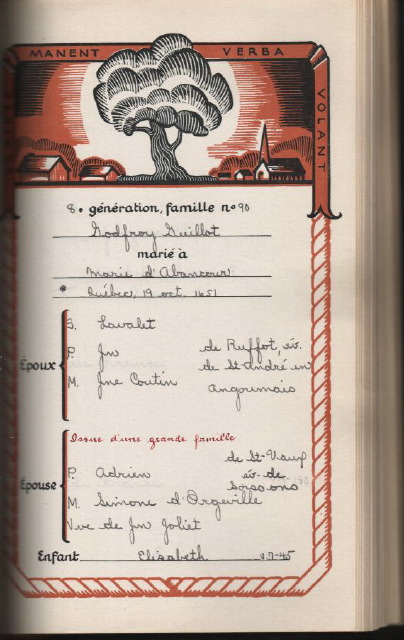 MANENT VERBA
VOLANT
8e génération, famille no 90
Godfroy Guillot
marié à
Marie d'Abancour
Québec, 19 oct. 1651
S. Lavalet
Époux
P. Jn de Ruffot, év.
de St-André en
M. Jne Coutin Angoumais
Issue d'une grande famille
de St-Vaup
P. Adrien év. de
Épouse Soissons
M. Simone d'Orgeville
Vve de Jn Joliet
Enfant Elisabeth V.7-45